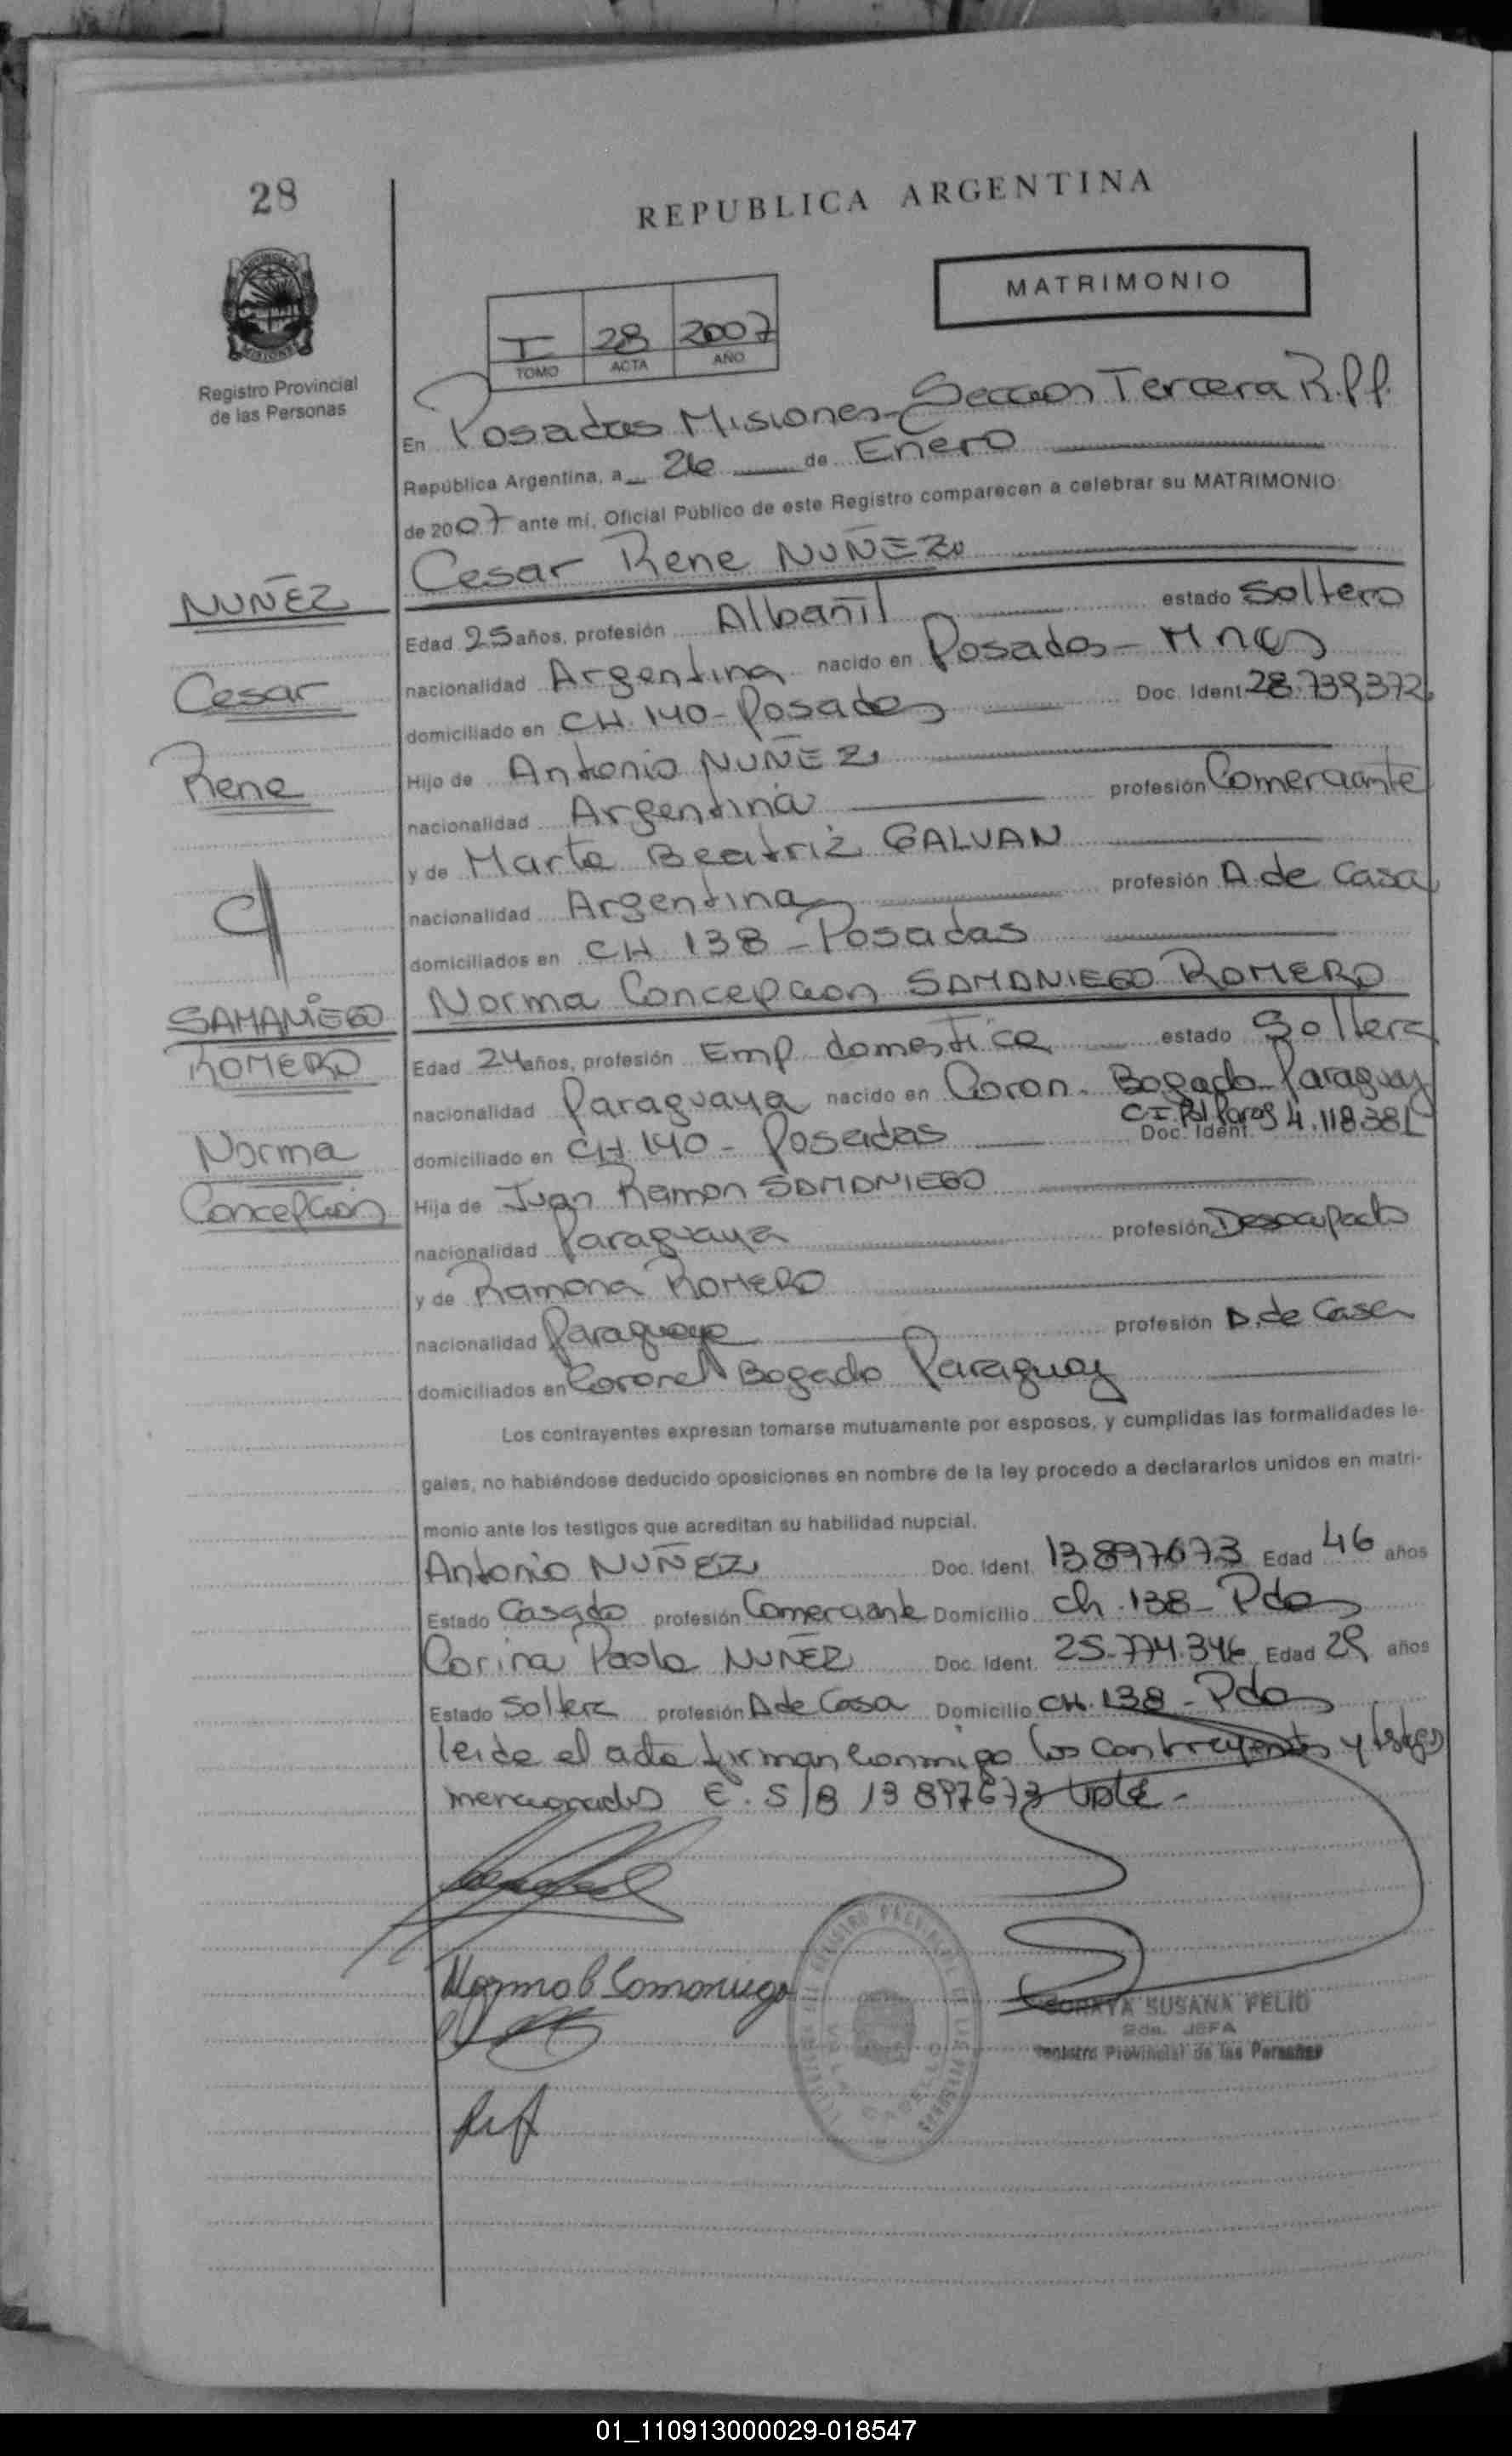 28
REPUBLICA ARGENTINA
MATRIMONIO
I 28 2007
TOMO ACTA AÑO
Registro Provincial
de las Personas
En Posadas Misiones - Seccion Tercera R.P.P.
República Argentina, a 26 de Enero
de 2007 ante mí, Oficial Público de este Registro comparecen a celebrar su MATRIMONIO:
Cesar Rene NUÑEZ
NUÑEZ
Edad 25 años, profesión Albañil estado Soltero
nacionalidad Argentina nacido en Posadas - Mnes
Cesar
domiciliado en CH. 140 - Posadas Doc. Ident. 28.739.372
Hijo de Antonio NUÑEZ
Rene
nacionalidad Argentina profesión Comerciante
y de Marta Beatriz GALVAN
nacionalidad Argentina profesión A. de Casa
domiciliados en CH 138 - Posadas
Norma Concepcion SAMANIEGO ROMERO
SAMANIEGO
ROMERO
Edad 24 años, profesión Emp domestica estado Soltera
nacionalidad Paraguaya nacido en Coron. Bogado - Paraguay
C.I. Pol Parag 4.118.381
Norma
domiciliado en CH 140 - Posadas Doc. Ident.
Concepcion
Hija de Juan Ramon SAMANIEGO
nacionalidad Paraguaya profesión Desocupado
y de Ramona ROMERO
nacionalidad Paraguaya profesión A. de Casa
domiciliados en Coronel Bogado Paraguay
Los contrayentes expresan tomarse mutuamente por esposos, y cumplidas las formalidades le-
gales, no habiéndose deducido oposiciones en nombre de la ley procedo a declararlos unidos en matri-
monio ante los testigos que acreditan su habilidad nupcial.
Antonio NUÑEZ Doc. Ident. 13.897.673 Edad 46 años
Estado Casado profesión Comerciante Domicilio Ch. 138 - Pdas
Corina Paola NUÑEZ Doc. Ident. 25.774.346 Edad 29 años
Estado Soltera profesión A de Casa Domicilio CH. 138 - Pdas
leida el acta firman conmigo los contrayentes y testigos
mencionados E. S/B 13 897673 Vale -
Norma C Samaniego
SORAYA SUSANA FELIU
2da. JEFA
Registro Provincial de las Personas
01_110913000029-018547